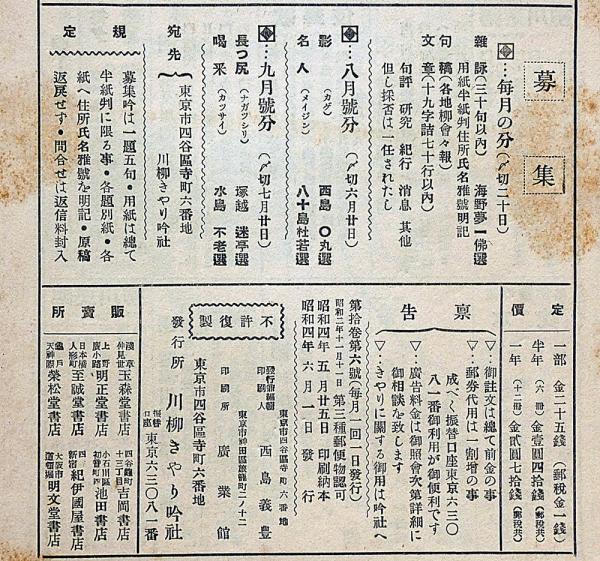 募集
◈…毎月の分(〆切二十日)
雜詠(三十句以內) 海野夢一佛選
用紙半紙判住所氏名雅號明記
句稿(各地柳會々報)
文章(十九字詰七十行以內)
句評 研究 紀行 消息 其他
但し採否は一任されたし
◈…八月號分(〆切六月廿日)
影(カゲ) 西島〇丸選
名人(メイジン) 八十島杜若選
◈…九月號分(〆切七月廿日)
長つ尻(ナガツシリ) 塚越迷亭選
喝采(カツサイ) 水島不老選
宛先
東京市四谷區寺町六番地
川柳きやり吟社
規定
募集吟は一題五句・用紙は總て
半紙判に限る事・各題別紙・各
紙へ住所氏名雅號を明記・原稿
返戻せず・問合せは返信料封入
定價
一部 金二十五錢(郵稅金一錢)
半年(六冊) 金壹圓四拾錢(郵稅共)
一年(十二冊) 金貳圓七拾錢(郵稅共)
稟告
▽…御註文は總て前金の事
▽…郵券代用は一割增の事
成べく振替口座東京六三〇
八一番御利用が御便利です
▽…廣告料金は御照會次第詳細に
御相談を致します
▽…きやりに關する御用は吟社へ
第拾卷第六號(每月一回一日發行)
昭和二年十一月十一日 第三種郵便物認可
昭和四年五月廿五日印刷納本
昭和四年六月一日發行
不許復製
東京市四谷區寺町六番地
發行兼編輯印刷人 西島義豊
東京市神田區旅籠町二ノ十二
印刷所 廣業館
東京市四谷區寺町六番地
發行所 川柳きやり吟社
振替口座東京六三〇八一番
販賣所
淺草仲見世 玉森堂書店
上野廣小路 明正堂書店
日本橋人形町 至誠堂書店
龜戶天神 榮松堂書店
四谷鹽町 吉岡書店
小石川區初音町 池田書店
四谷新宿 紀伊國屋書店
大阪市道頓堀 明文堂書店